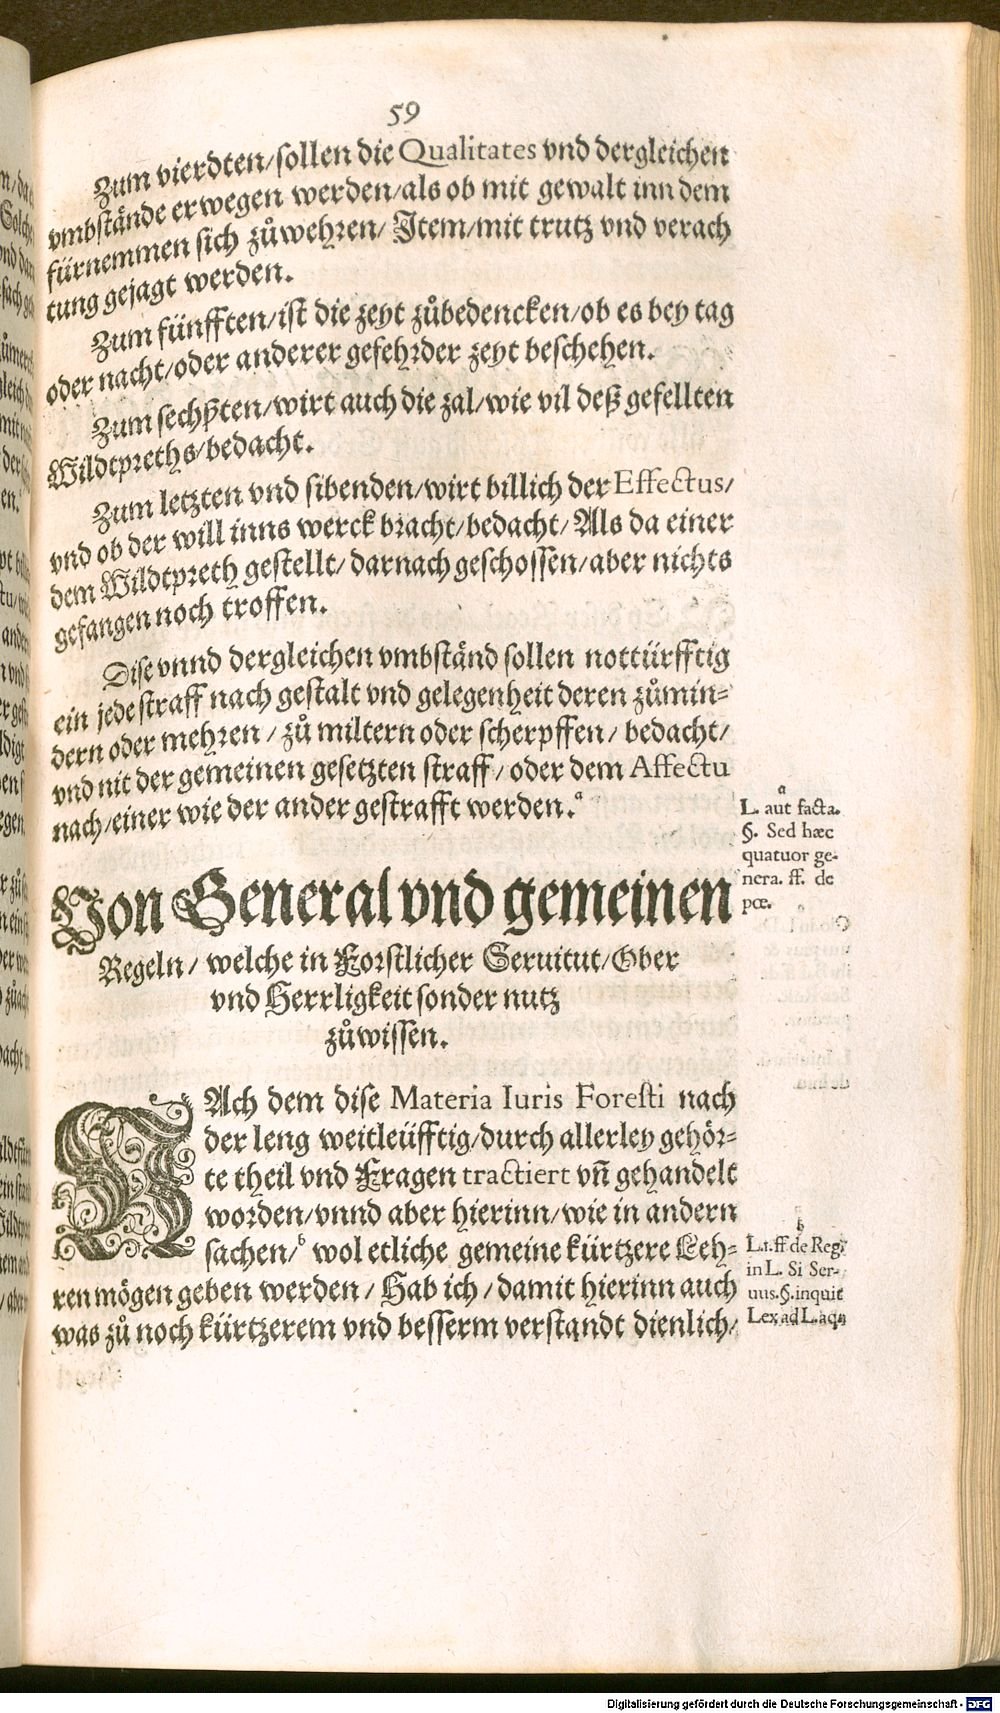 59
Zum vierdten/sollen die Qualitates vnd dergleichen
vmbstände erwegen werden/als ob mit gewalt inn dem
fürnemmen sich zůwehren/ Item/mit trutz vnd verach
tung gejagt werden.
Zum fünfften/ist die zeyt zůbedencken/ob es bey tag
oder nacht/oder anderer gefehrder zeyt beschehen.
Zum sechßten/wirt auch die zal/wie vil deß gefellten
Wildtpreths/bedacht.
Zum letzten vnd sibenden/wirt billich der Effectus/
vnd ob der will inns werck bracht/bedacht/ Als da einer
dem Wildtpreth gestellt/ darnach geschossen/aber nichts
gefangen noch troffen.
Dise vnnd dergleichen vmbständ sollen nottürfftig
ein jede straff nach gestalt vnd gelegenheit deren zůmin=
dern oder mehren / zů miltern oder scherpffen/ bedacht/
vnd nit der gemeinen gesetzten straff/ oder dem Affectu
nach/einer wie der ander gestrafft werden.ª
a
L. aut facta.
§. Sed hæc
quatuor ge-
nera. ff. de
pœ.
Von General vnd gemeinen
Regeln/ welche in Forstlicher Seruitut/Ober
vnd Herrligkeit sonder nutz
zůwissen.
NAch dem dise Materia Iuris Foresti nach
der leng weitleüfftig/durch allerley gehör=
te theil vnd Fragen tractiert vñ gehandelt
worden/vnnd aber hierinn/wie in andern
sachen/ᵇ wol etliche gemeine kürtzere Leh=
ren mögen geben werden/ Hab ich / damit hierinn auch
was zů noch kürtzerem vnd besserm verstandt dienlich/
b
L.1.ff de Reg.
in L. Si Ser-
uus.§.inquit
Lex ad L.aqu
Digitalisierung gefördert durch die Deutsche Forschungsgemeinschaft - DFG